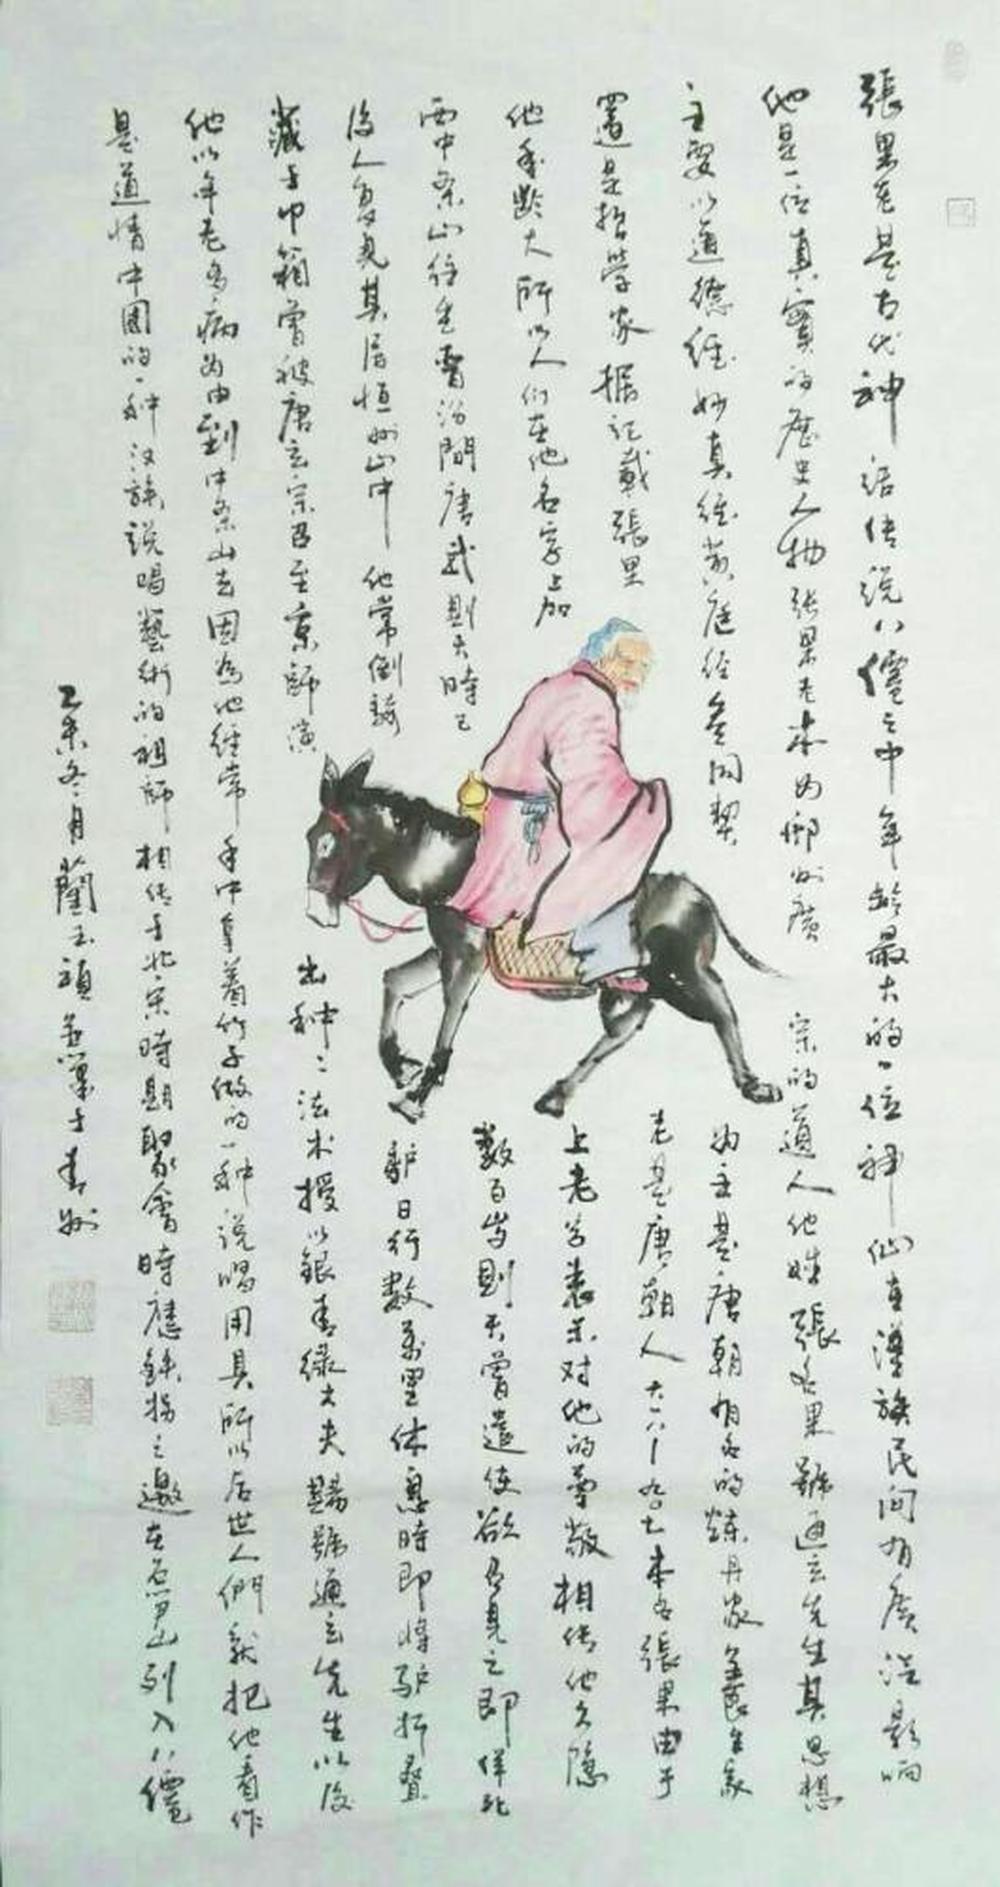 張果老是古代神话传说八僊之中年龄最大的一位神仙在漢族民间有广泛影响
他是一位真實的歷史人物张果老本为邢州廣宗的道人他姓張名果號通玄先生其思想
主要以道德经妙真经黄庭经参同契为主是唐朝有名的炼丹家養生家
還是哲学家据记载張果老是唐朝人本名張果由于
他年龄大所以人们在他名字上加上老字表示对他的尊敬相传他久隐
西中条山往來晋汾間唐武則天時已數百岁則天曾遣使欲召見之即佯死
後人复見其居恒州山中他常倒騎驴日行数万里休息時即将驴折叠
藏于巾箱曾被唐玄宗召至京師演出种々法术授以銀青绿大夫賜號通玄先生以後
他以年老多病为由到中条山去因為他經常手中拿着竹子做的一种说唱用具所以后世人們就把他看作
是道情中国的一种汉族説唱藝術的祖師相传于北宋時期聚會時應鉄拐之邀在石笋山列入八僊
乙未冬月蘭玉禎並業于青州